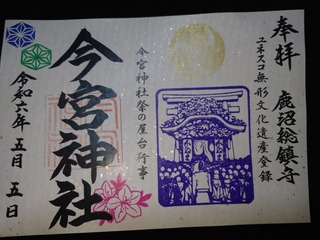 奉拝
鹿沼総鎮守
ユネスコ無形文化遺産登録
今宮神社祭の屋台行事
今宮神社
令和六年五月五日